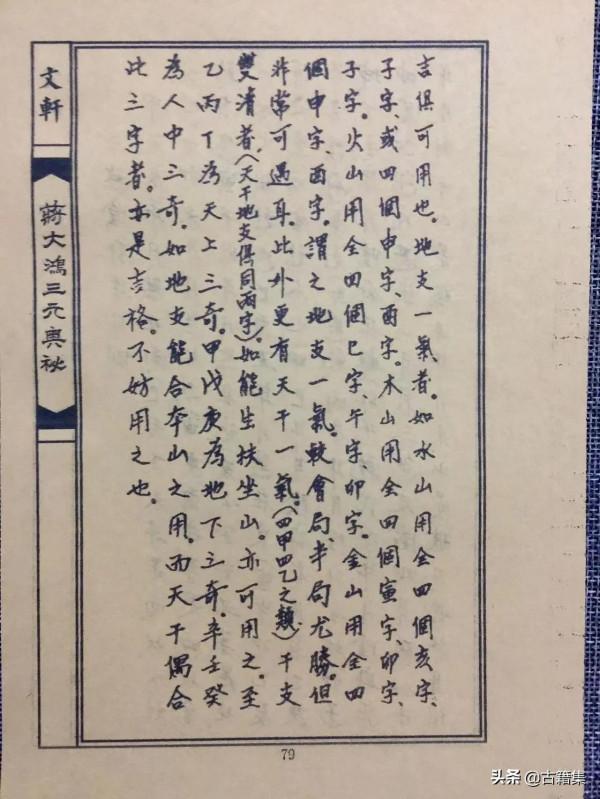 吉俱可用也。地支一氣者。如水山用全四個亥字、
子字、或四個申字、酉字。木山用全四個寅字、卯字、
子字。火山用全四個巳字、午字、卯字。金山用全四
個申字、酉字。謂之地支一氣。較會局、半局尤勝。但
非常可遇耳。此外更有天干一氣。(四甲四乙之類)干支
雙清者、(天干地支俱同兩字)。如能生扶坐山。亦可用之。至
乙丙丁為天上三奇。甲戊庚為地下三奇。辛壬癸
為人中三奇。如地支能合本山之用。而天干偶合
此三字者。亦是吉格。不妨用之也。
文軒
蔣大鴻三元奧秘
79
头条 @古籍集